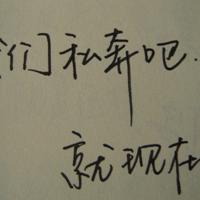 们私奔吧.
就现在